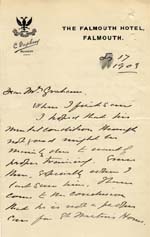 THE FALMOUTH HOTEL,
FALMOUTH.
17
1903
Dear Mrs Graham
When I first saw
I hoped that his
mental condition though
not good might be
mainly due to want of
proper training. Since
then, especially when I
last saw him, I have
come to the conclusion
that he is not a proper
case for St Martins Home